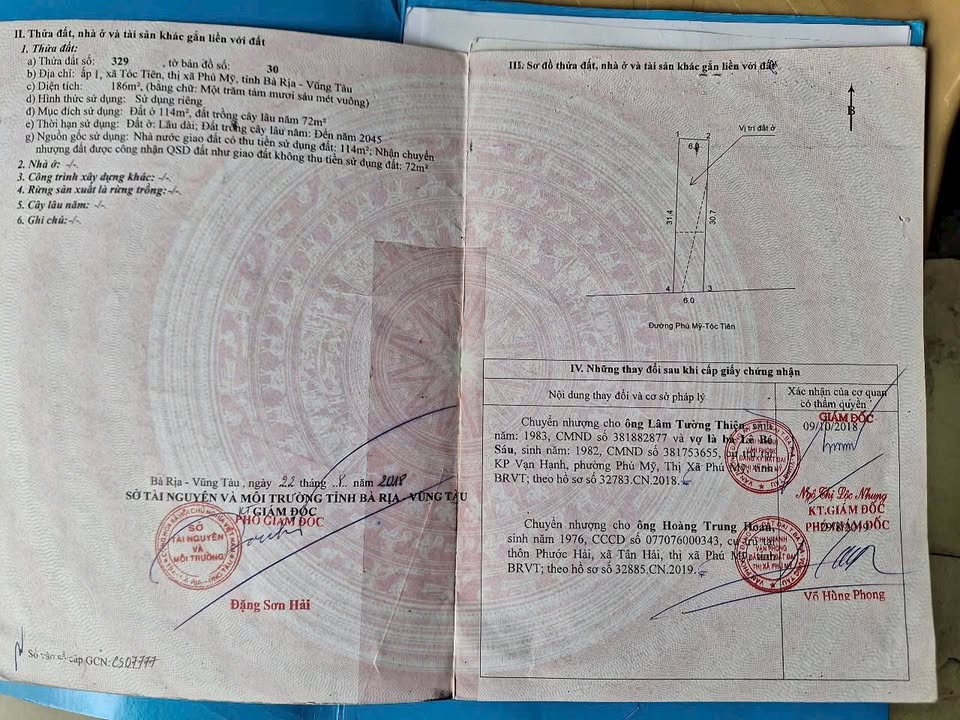 II. Thửa đất, nhà ở và tài sản khác gắn liền với đất
1. Thửa đất:
a) Thửa đất số: 329 , tờ bản đồ số: 30
b) Địa chỉ: ấp 1, xã Tóc Tiên, thị xã Phú Mỹ, tỉnh Bà Rịa - Vũng Tàu
c) Diện tích: 186m², (bằng chữ: Một trăm tám mươi sáu mét vuông)
d) Hình thức sử dụng: Sử dụng riêng
đ) Mục đích sử dụng: Đất ở 114m², đất trồng cây lâu năm 72m²
e) Thời hạn sử dụng: Đất ở: Lâu dài; Đất trồng cây lâu năm: Đến năm 2045
g) Nguồn gốc sử dụng: Nhà nước giao đất có thu tiền sử dụng đất: 114m²; Nhận chuyển
nhượng đất được công nhận QSD đất như giao đất không thu tiền sử dụng đất: 72m²
2. Nhà ở: -/-
3. Công trình xây dựng khác: -/-
4. Rừng sản xuất là rừng trồng:-/-
5. Cây lâu năm: -/-
6. Ghi chú:-/-
Bà Rịa - Vũng Tàu , ngày 22 tháng 8 năm 2018
SỞ TÀI NGUYÊN VÀ MÔI TRƯỜNG TỈNH BÀ RỊA - VŨNG TÀU
KT GIÁM ĐỐC
PHÓ GIÁM ĐỐC
SỞ
TÀI NGUYÊN
VÀ
MÔI TRƯỜNG
Đặng Sơn Hải
Số vào sổ cấp GCN: CS07777
III. Sơ đồ thửa đất, nhà ở và tài sản khác gắn liền với đất
B
Vị trí đất ở
1 2
6.0
31.4 30.7
4 3
6.0
Đường Phú Mỹ-Tóc Tiên
IV. Những thay đổi sau khi cấp giấy chứng nhận
Nội dung thay đổi và cơ sở pháp lý
Xác nhận của cơ quan
có thẩm quyền
Chuyển nhượng cho ông Lâm Tường Thiên, sinh
năm: 1983, CMND số 381882877 và vợ là bà Lê Bé
Sáu, sinh năm: 1982, CMND số 381753655, cư trú tại
KP Vạn Hạnh, phường Phú Mỹ, Thị Xã Phú Mỹ, tỉnh
BRVT; theo hồ sơ số 32783.CN.2018.
GIÁM ĐỐC
09/10/2018
Ngô Thị Lộc Nhung
Chuyển nhượng cho ông Hoàng Trung Hoan, sinh
năm 1976, CCCD số 077076000343, cư trú tại
thôn Phước Hải, xã Tân Hải, thị xã Phú Mỹ, tỉnh
BRVT; theo hồ sơ số 32885.CN.2019.
KT.GIÁM ĐỐC
PHÓ GIÁM ĐỐC
Võ Hùng Phong